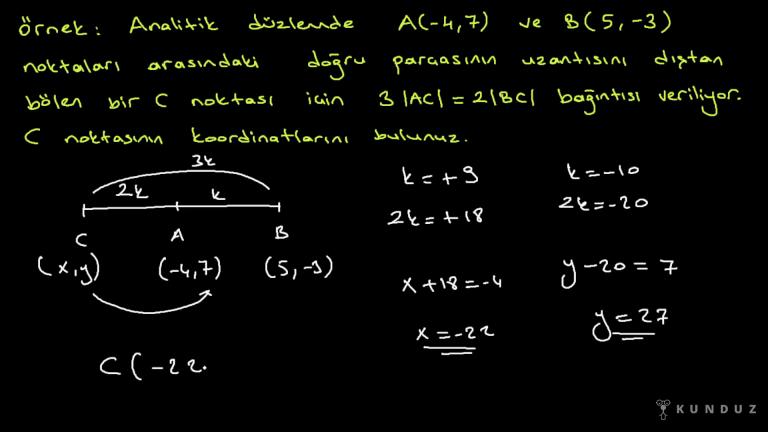 Örnek: Analitik düzlemde A(-4,7) ve B(5,-3)
noktaları arasındaki doğru parçasının uzantısını dıştan
bölen bir C noktası için 3|AC| = 2|BC| bağıntısı veriliyor.
C noktasının koordinatlarını bulunuz.
3k
2k k
C A B
(x,y) (-4,7) (5,-3)
k=+9 k=-10
2k=+18 2k=-20
x+18=-4 y-20=7
x=-22 y=27
C(-22.
KUNDUZ